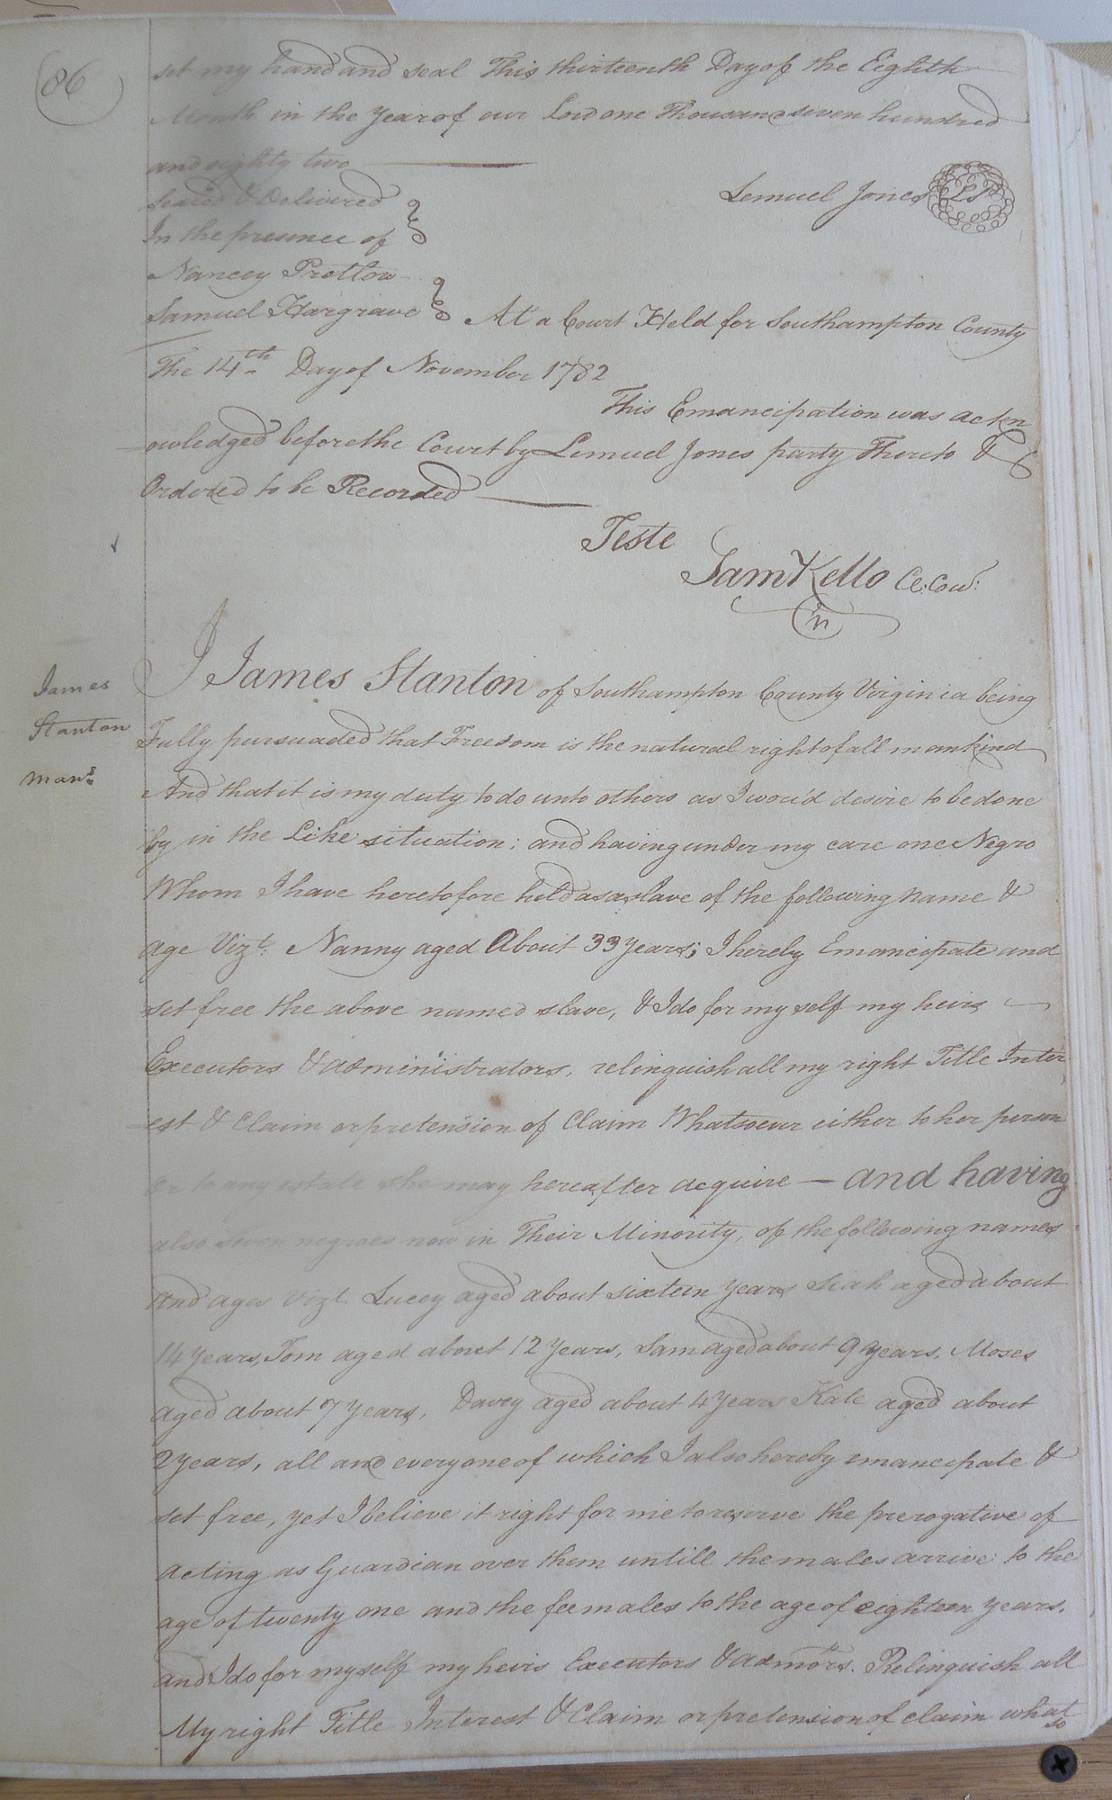 86
set my hand and seal This thirteenth Day of the Eighth
Month in the Year of our Lord one Thousand seven hundred
and eighty two
Sealed & Delivered
Lemuel Jones LS
In the presence of
Nancey Pretlow
Samuel Hargrave
At a Court Held for Southampton County
The 14th Day of November 1782
This Emancipation was ackn
owledged before the Court by Lemuel Jones party Thereto &
Ordered to be Recorded
Teste
Sam Kello Cl: Cou:
James
Stanton
Mans
I James Stanton of Southampton County Virginia being
Fully pursuaded that Freedom is the natural right of all mankind
And that it is my duty to do unto others as I wou'd desire to be done
by in the Like situation; and having under my care one Negro
Whom I have heretofore held as a slave of the following Name &
age Vizt. Nanny aged About 33 Years; I hereby Emancipate and
set free the above named slave, & I do for my self my heirs
Executors & administrators, relinquish all my right Title Inter
est & Claim or pretension of Claim Whatsoever either to her person
or to any estate she may hereafter acquire — and having
also seven negroes now in Their Minority, of the following names
And ages Vizt. Lucey aged about sixteen years Siah aged about
14 Years, Tom aged about 12 Years, Sam aged about 9 Years. Moses
aged about 7 Years, Davey aged about 4 Years Kate aged about
2 years, all and every one of which I also hereby emancipate &
set free, yet I believe it right for me to reserve the prerogative of
acting as Guardian over them untill the males arrive to the
age of twenty one and the feemales to the age of eighteen years.
and I do for myself my heirs Executors & admors. Relinquish all
My right Title Interest & Claim or pretension of claim what
so